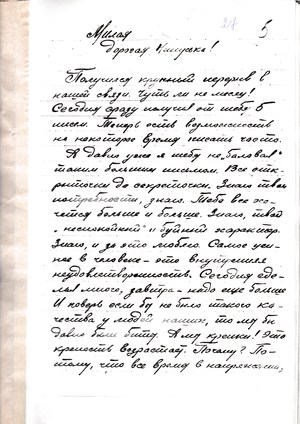 24
5
Милая
дорогая Кисусько!
Получился крупный перерыв в
нашей связи. Чуть ли не месяц!
Сегодня сразу получил от тебя 5
писем. Теперь есть возможность
на некоторое время писать часто.
А давно уже я тебя не "баловал"
таким большим письмом. Все отк-
рыточки да секреточки. Знаю твои
потребности, знаю. Тебе все хо-
чется больше и больше. Знаю, твой
"неспокойный" и буйный характер.
Знаю, и за это люблю. Самое цен-
ное в человеке - это внутренняя
неудовлетворенность. Сегодня сде-
лал много, завтра - надо еще больше
И поверь если бы не было такого ка-
чества у людей наших, то мы бы
давно были биты. А мы крепки! Эта
крепость возрастает. Почему? По-
тому, что все время в напряжении,